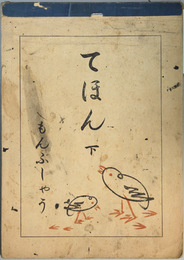 てほん
下
もんぶしやう